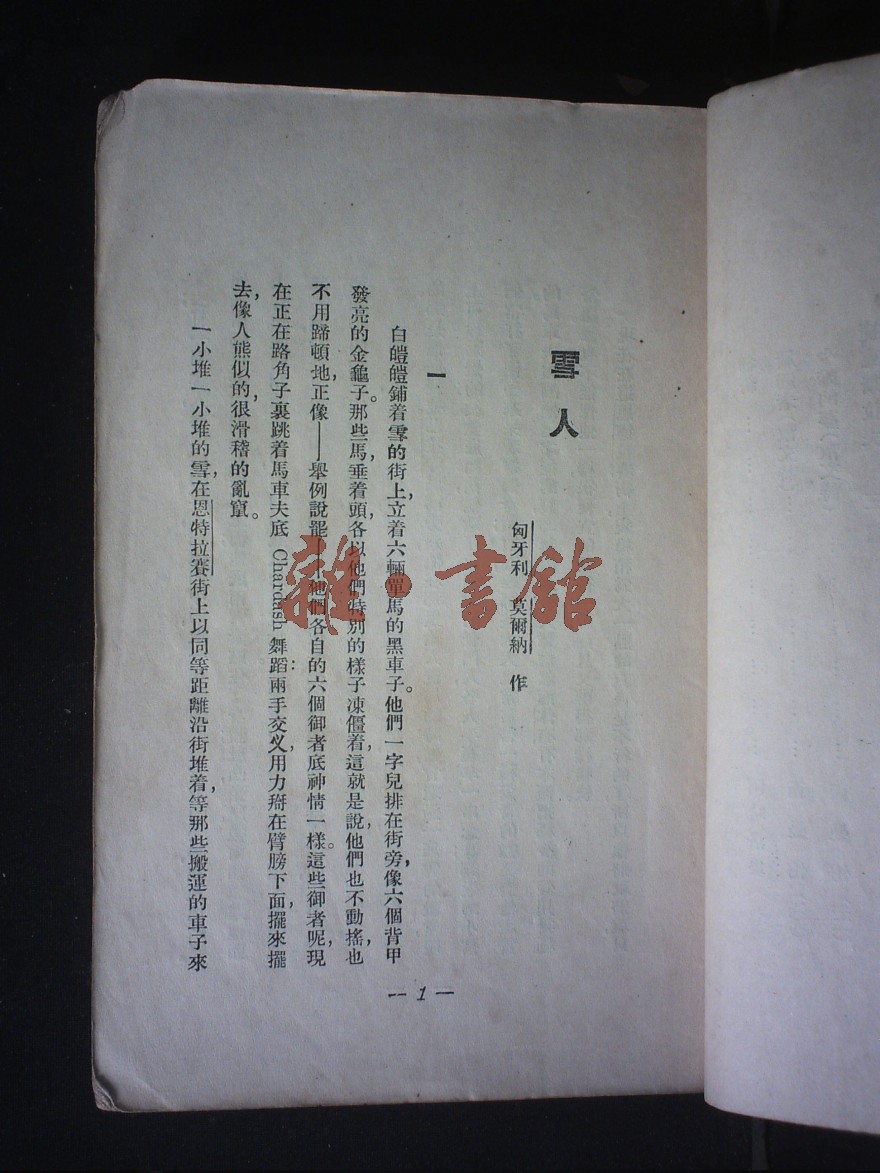 雪人
匈牙利 莫爾納 作
一
白皚皚鋪着雪的街上，立着六輛單馬的黑車子。他們一字兒排在街旁，像六個背甲
發亮的金龜子。那些馬，垂着頭，各以他們特別的樣子凍僵着，這就是說，他們也不動搖，也
不用蹄頓地，正像——舉例說罷——他們各自的六個御者底神情一樣。這些御者呢，現
在正在路角子裏跳着馬車夫底 Chardash 舞蹈：兩手交叉，用力搿在臂膀下面，擺來擺
去，像人熊似的，很滑稽的亂竄。
一小堆一小堆的雪，在恩特拉賽街上以同等距離沿街堆着，等那些搬運的車子來
— 1 —
雜·書館